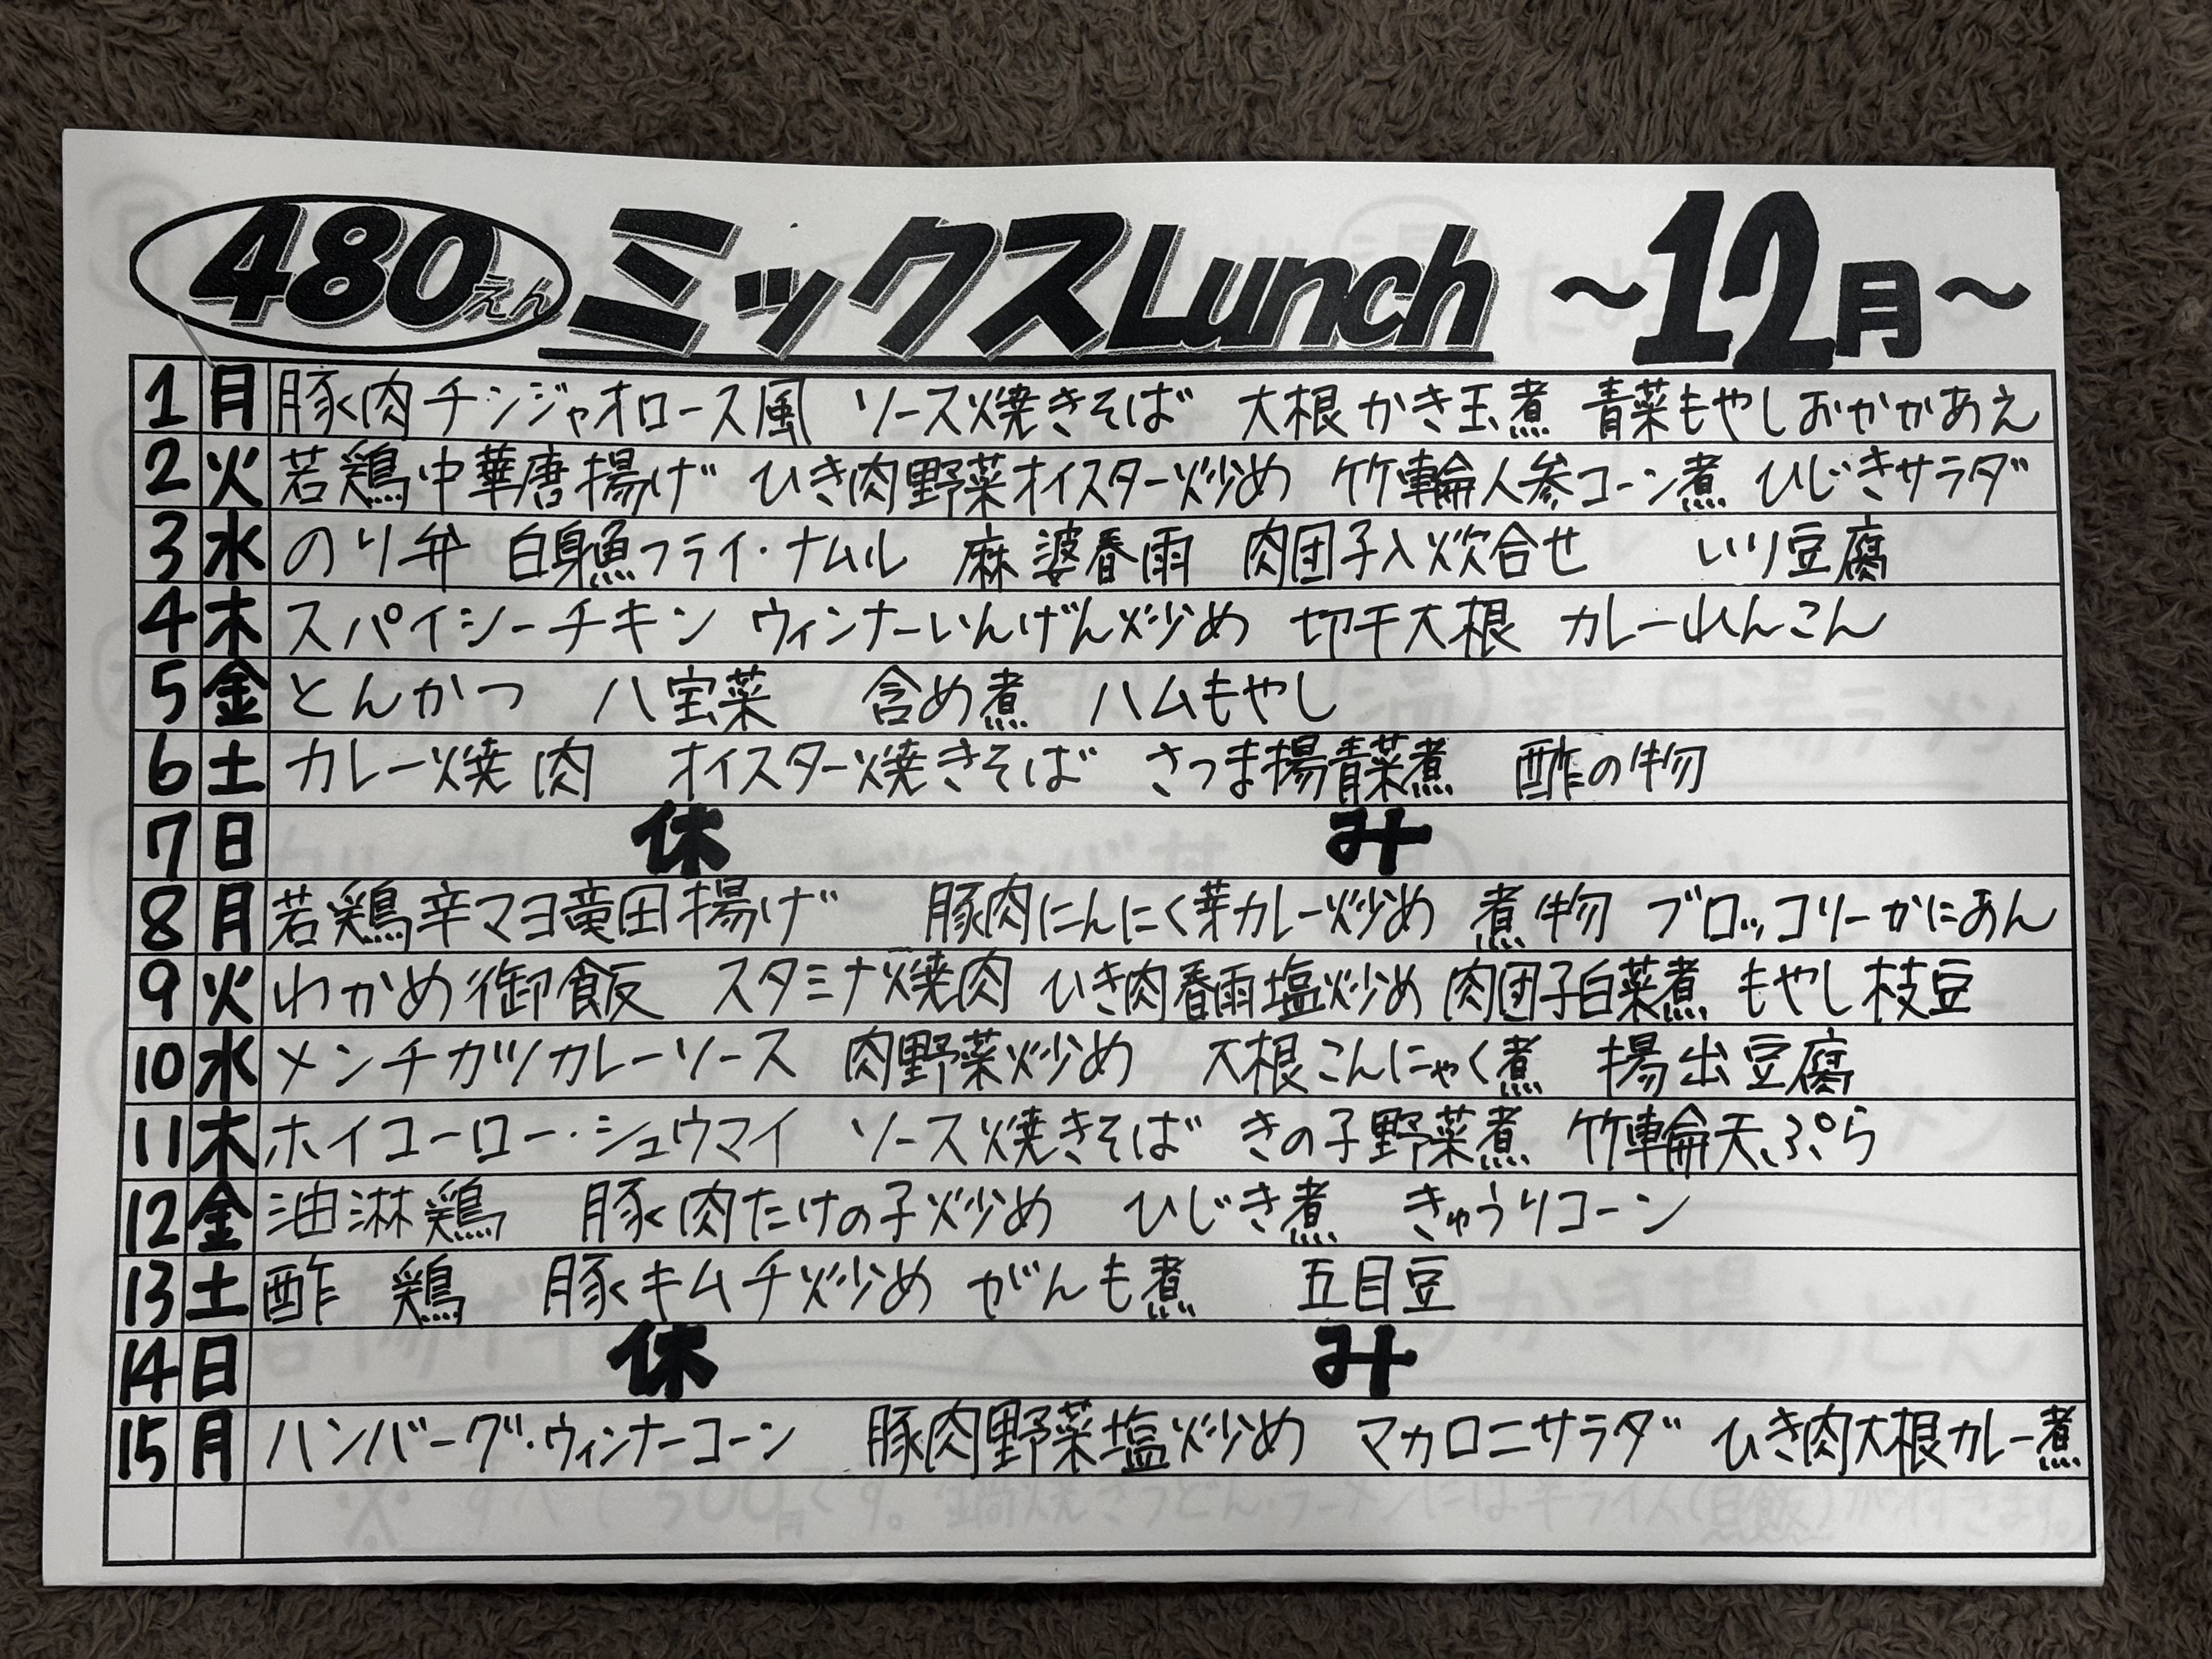 480えん ミックスLunch ～12月～
1 月 豚肉チンジャオロース風 ソース焼きそば 大根かき玉煮 青菜もやしおかかあえ
2 火 若鶏中華唐揚げ ひき肉野菜オイスター炒め 竹輪人参コーン煮 ひじきサラダ
3 水 のり弁 白身魚フライ・ナムル 麻婆春雨 肉団子入炊合せ いり豆腐
4 木 スパイシーチキン ウィンナーいんげん炒め 切干大根 カレーれんこん
5 金 とんかつ 八宝菜 含め煮 ハムもやし
6 土 カレー焼肉 オイスター焼きそば さつま揚青菜煮 酢の物
7 日 休み
8 月 若鶏辛マヨ竜田揚げ 豚肉にんにく芽カレー炒め 煮物 ブロッコリーかにあん
9 火 わかめ御飯 スタミナ焼肉 ひき肉春雨塩炒め 肉団子白菜煮 もやし枝豆
10 水 メンチカツカレーソース 肉野菜炒め 大根こんにゃく煮 揚出豆腐
11 木 ホイコーロー・シュウマイ ソース焼きそば きの子野菜煮 竹輪天ぷら
12 金 油淋鶏 豚肉たけの子炒め ひじき煮 きゅうりコーン
13 土 酢鶏 豚キムチ炒め がんも煮 五目豆
14 日 休み
15 月 ハンバーグ・ウィンナーコーン 豚肉野菜塩炒め マカロニサラダ ひき肉大根カレー煮